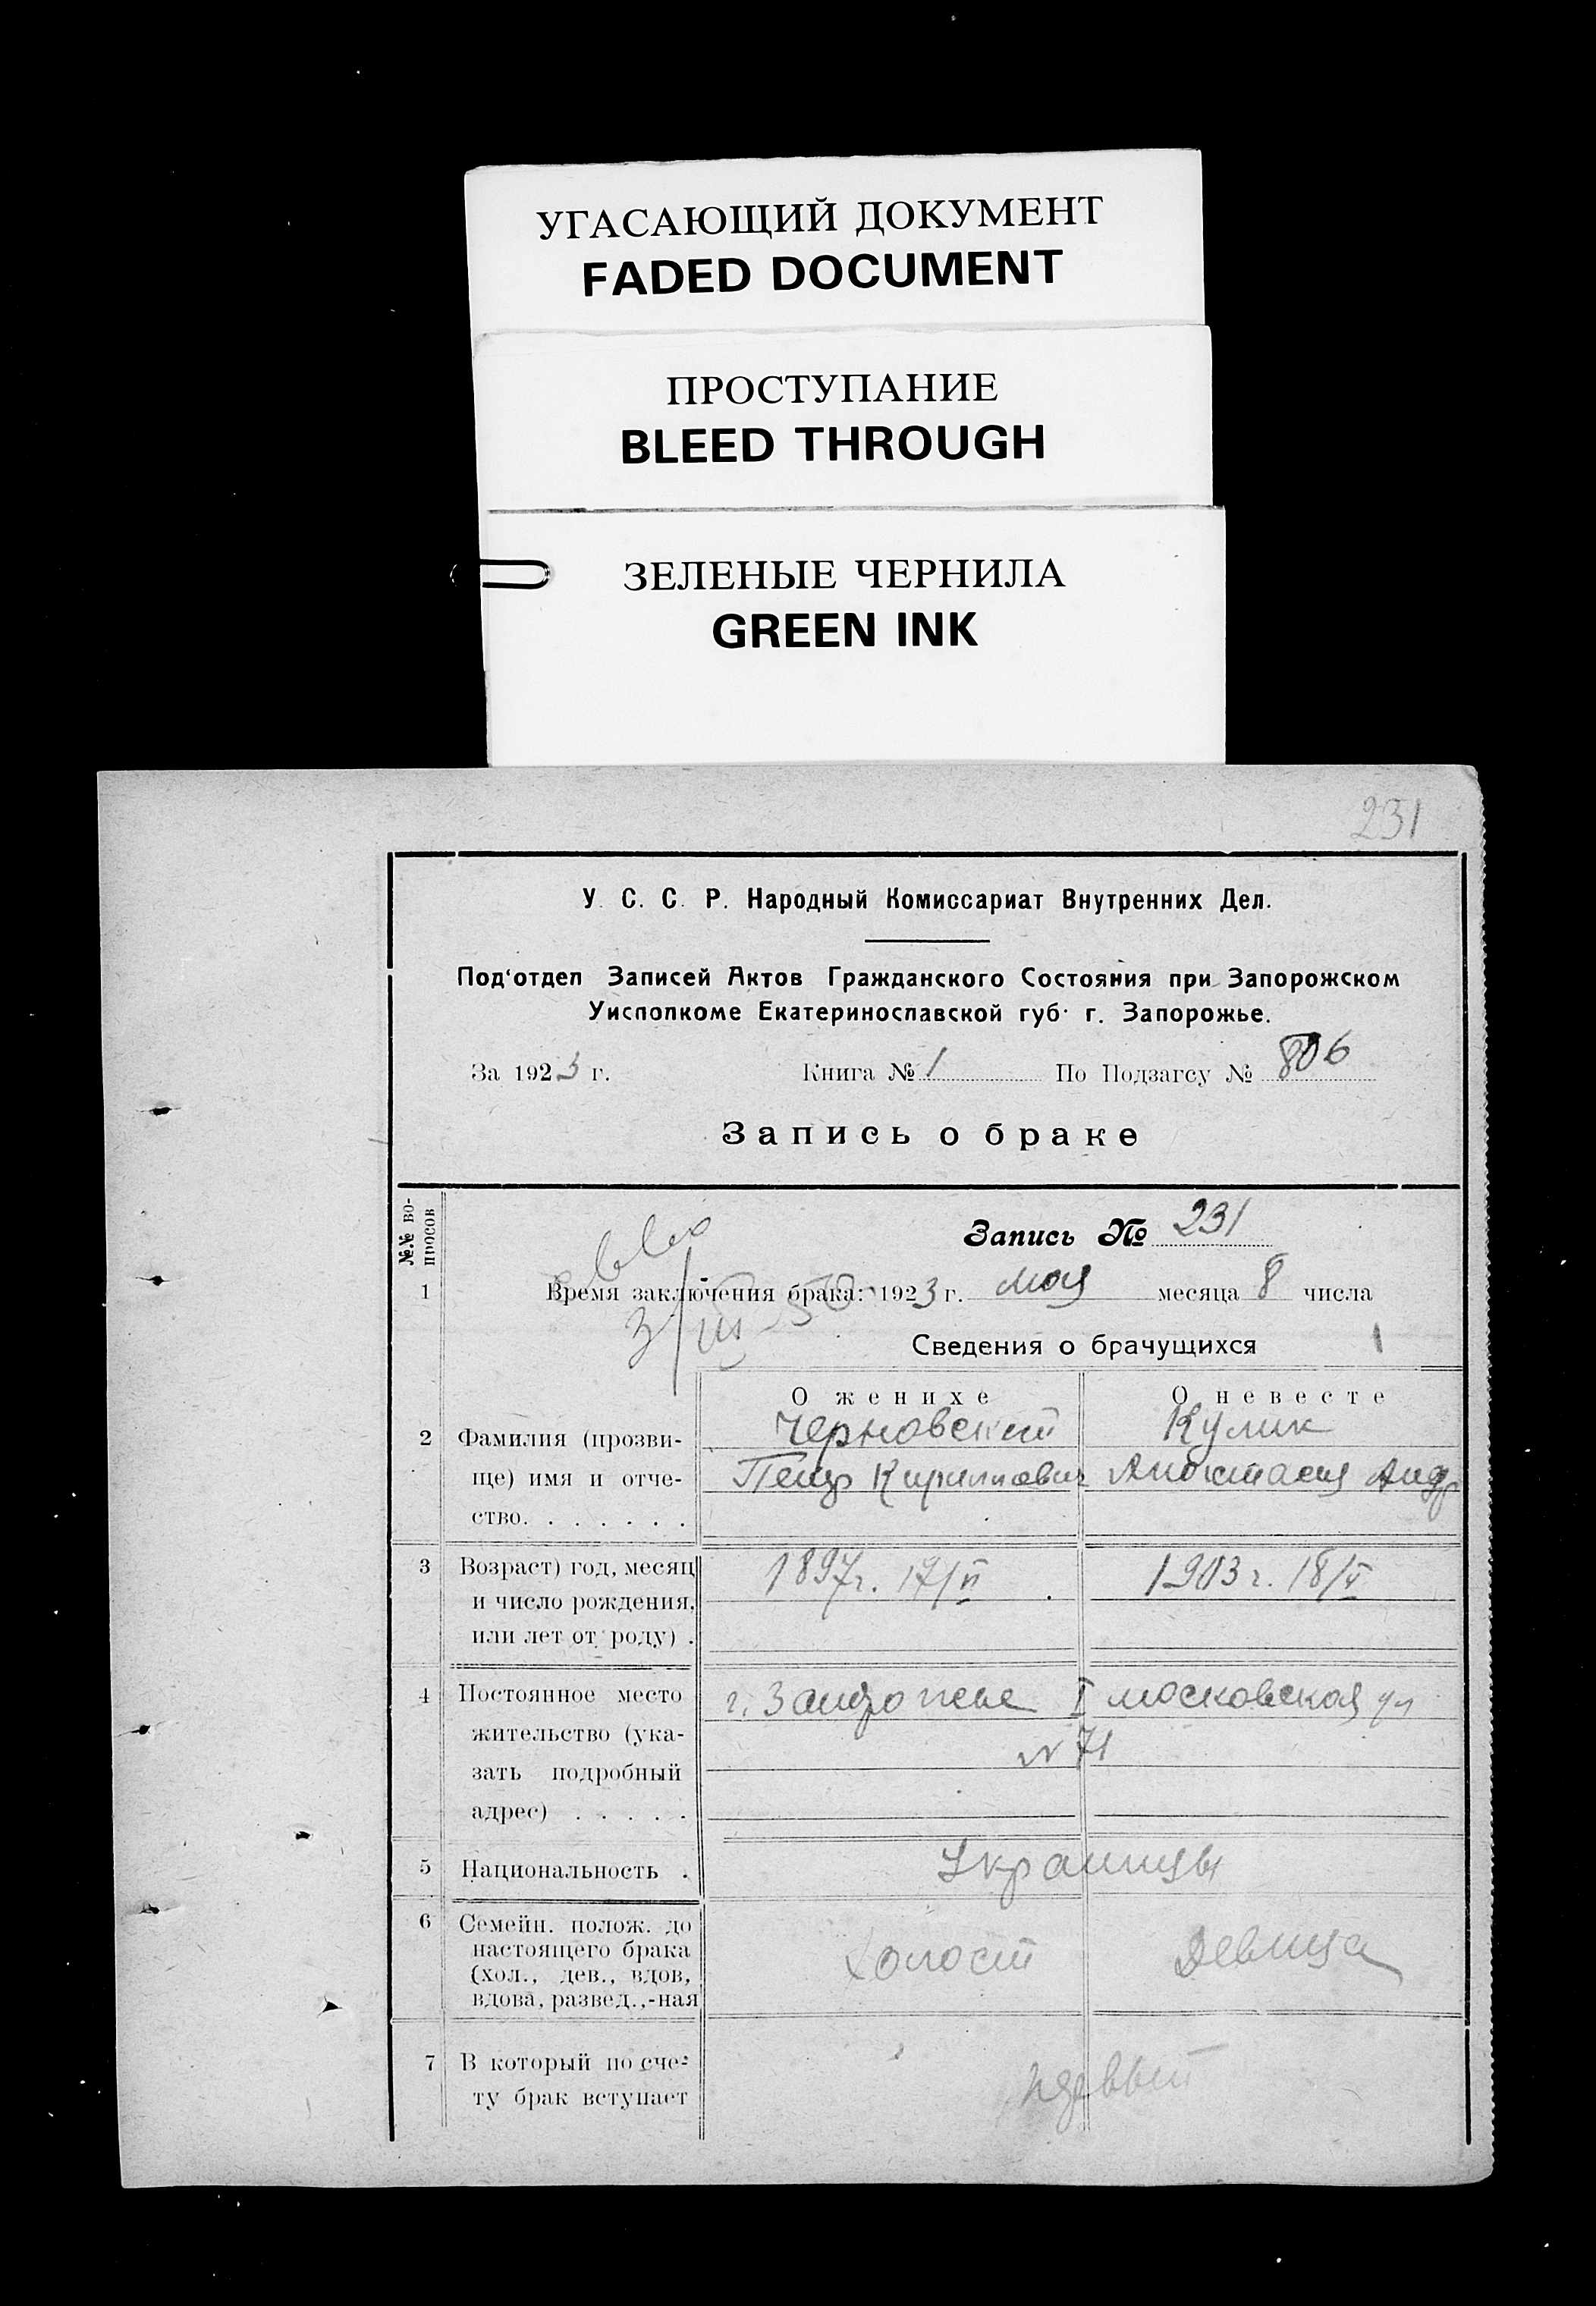 УГАСАЮЩИЙ ДОКУМЕНТ
FADED DOCUMENT
ПРОСТУПАНИЕ
BLEED THROUGH
ЗЕЛЕНЫЕ ЧЕРНИЛА
GREEN INK
231
У. С. С. Р. Народный Комиссариат Внутренних Дел.
Под‘отдел Записей Актов Гражданского Состояния при Запорожском
Уисполкоме Екатеринославской губ. г. Запорожье.
За 1923 г. Книга № 1 По Подзагсу № 806
Запись о браке
№№ во-
просов
Запись № 231
1 Время заключения брака: 1923 г. мая месяца 8 числа
3/III-50
Сведения о брачущихся 1
О женихе О невесте
2 Фамилия (прозви- Черновский Кулик
ще) имя и отче- Петр Кириллович Анастасия Андр
ство. . . . . . .
3 Возраст) год, месяц 1897г. 17/VI 1903 г. 18/V
и число рождения,
или лет от роду) .
4 Постоянное место г. Запорожье I московская ул
жительство (ука- N 71
зать подробный
адрес) . . . . .
5 Национальность . Украинцы
6 Семейн. полож. до
настоящего брака холост Девица
(хол., дев., вдов,
вдова, развед.,-ная
7 В который по сче- первый
ту брак вступает